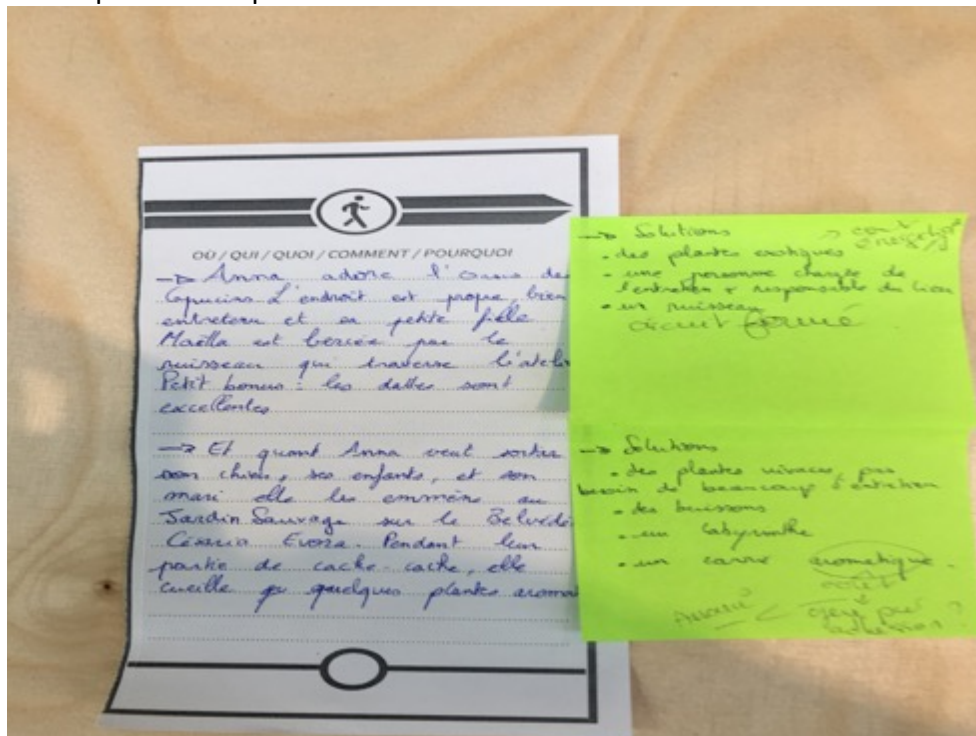 OÙ / QUI / QUOI / COMMENT / POURQUOI
→ Anna adore l' des
Capucins L'endroit est propre, bien
entretenu et sa petite fille
Maëlla est bercée par le
ruisseau qui traverse l'atel
Petit bonus : les dattes sont
excellentes
→ Et quant Anna veut sortir
son chien, ses enfants, et son
mari elle les emmène au
Jardin Sauvage sur le Belvédè
Césaria Evora. Pendant leur
partie de cache-cache, elle
cueille quelques plantes aroma
→ Solutions
• des plantes exotiques
• une personne chargée de
l'entretien + responsable du lieu
• un ruisseau
circuit fermé
→ Solutions
• des plantes vivaces, pas
besoin de beaucoup d'entretien
• des buissons
• un labyrinthe
• un carré aromatique